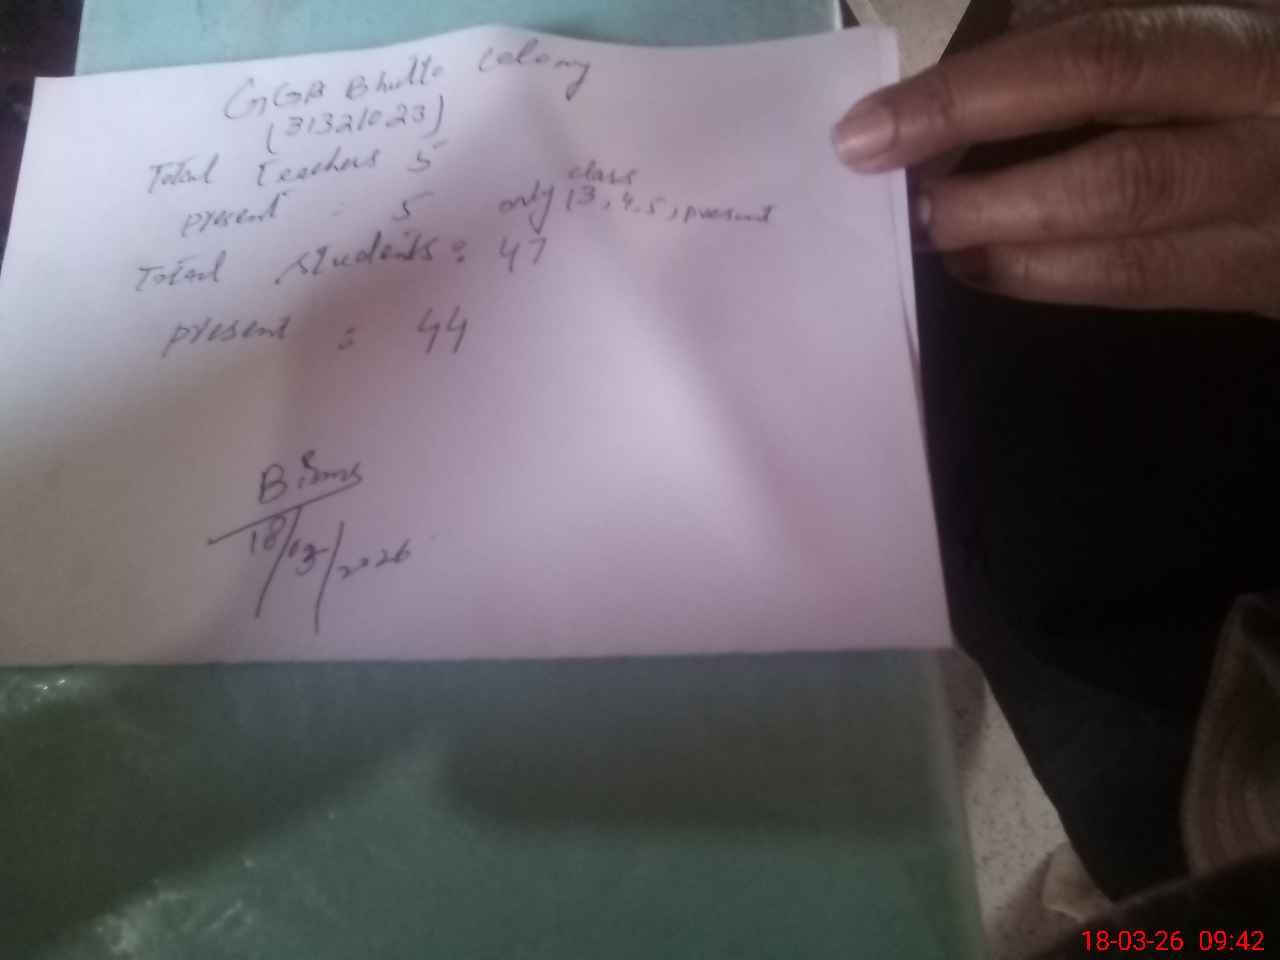 GGPS Bhutto Colony
(31321023)
Total Teachers 5
present : 5 only class 3, 4, 5, present
Total students : 47
present : 44
18/03/2026
18-03-26 09:42